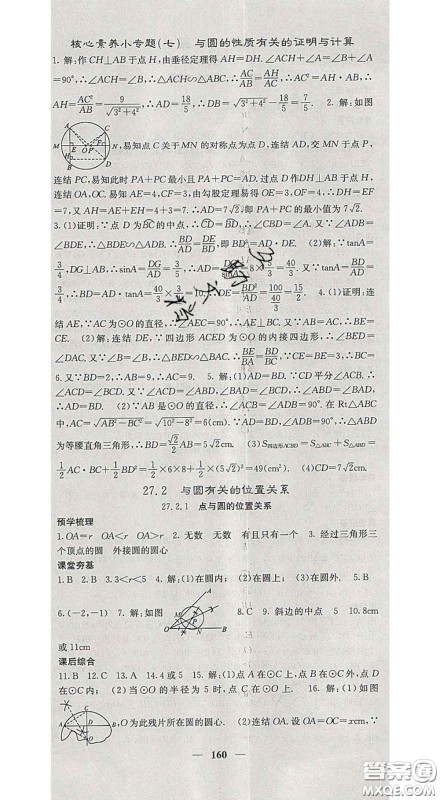 核心素养小专题(七)　与圆的性质有关的证明与计算
1. 解:作CH⊥AB于点H,由垂径定理得AH=DH.∠ACH+∠BCH=∠B+∠BCH
=90°,∴∠ACH=∠B,∴△ACH∽△ABC,∴AC/AB=AH/AC,∴AC²=AH·AB,∴
AH=AC²/AB=9/√(3²+4²)... 2. 解:如图
,易知点C关于MN的对称点为点D,连结AD,交MN于点P,
连结PC,易知此时PA+PC最小且PA+PC=AD.过点D作DH⊥AB于H,
连结OA,OC.易知AE=4,CF=3,由勾股定理易得OE=3,OF=4,∴DH=EF
=7.又AH=AE+EH=4+3=7.∴AD=7√2,即PA+PC的最小值为7√2.
3. (1)证明:∵点D为BC的中点,∴BD=CD,∴∠BAD=∠DBC.又∵∠ADB
=∠BDE,∴△ABD∽△BED,∴BD/AD=DE/BD,即BD²=AD·DE. (2)解:∵tanA=
3/4,DG⊥AB,∴sinA=DG/AD=3/5,
3/4,∴BD=AD·tanA=40/3×3/4 DE=BD²/AD=100/(40/3)=15/2. 4. (1)证明:连
结AE,∵AC为⊙O的直径,∴∠AEC=90°,∴AE⊥BC.又∵AB=AC,∴BE=
CE. (2)解:连结DE.∵四边形ACED为⊙O的内接四边形,∴∠BED=
∠DAC.又∵∠B=∠B,∴△BED∽△BAC,∴BE/BA=BD/BC.∵BE=CE=3,∴BC=
6.又∵BD=2,∴AB=9,∴AC=9. 5. 解:(1)AD=BD.∵CD平分∠ACB,∴
∠ACD=∠BCD.又∵∠ACD=∠ABD,∠BCD=∠BAD,∴∠ABD=∠BAD,
∴AD=BD. (2)∵AB为⊙O的直径,∴∠ACB=∠ADB=90°.在Rt△ABC
中,AC=√(AB²−BC²)=√(10²−8²)=6(cm).∵∠ADB=90°,AD=BD,∴△ABD
为等腰直角三角形,∴BD=√2/2AB=5√2cm. (3)S四边形ACBD=S△ABC+S△ABD=
1/2AC×BC+1/2AD×BD=1/2×6×8+1/2×(5√2)²=49(cm²). (4)CD=7√2cm.
27.2　与圆有关的位置关系
27.2.1　点与圆的位置关系
预学梳理
1. OA=r　OB<r　OC>r　2. 无数　无数　有且只有一个　3. 经过三角形三
个顶点的圆　外接圆的圆心
课堂夯基
1. B　2. B　3. 3<r<5　4. 解:(1)在圆内; (2)在圆上; (3)在圆外. 5. B
6. (−2,−1)　7. 解:如图　8. C　9. 斜边的中点　5　10. 8cm
或11cm
课后综合
11. B　12. C　13. A　14. 4或5　15. 解:(1)点A在⊙C上,点B在⊙C外,点D
在⊙C内; (2)当⊙O的半径为5时,点C在⊙O上. 16. 解:(1)如图
,O为此残片所在圆的圆心. (2)连结OA.设OA=OC=xcm,∵
160
答案圈
MXQE.COM